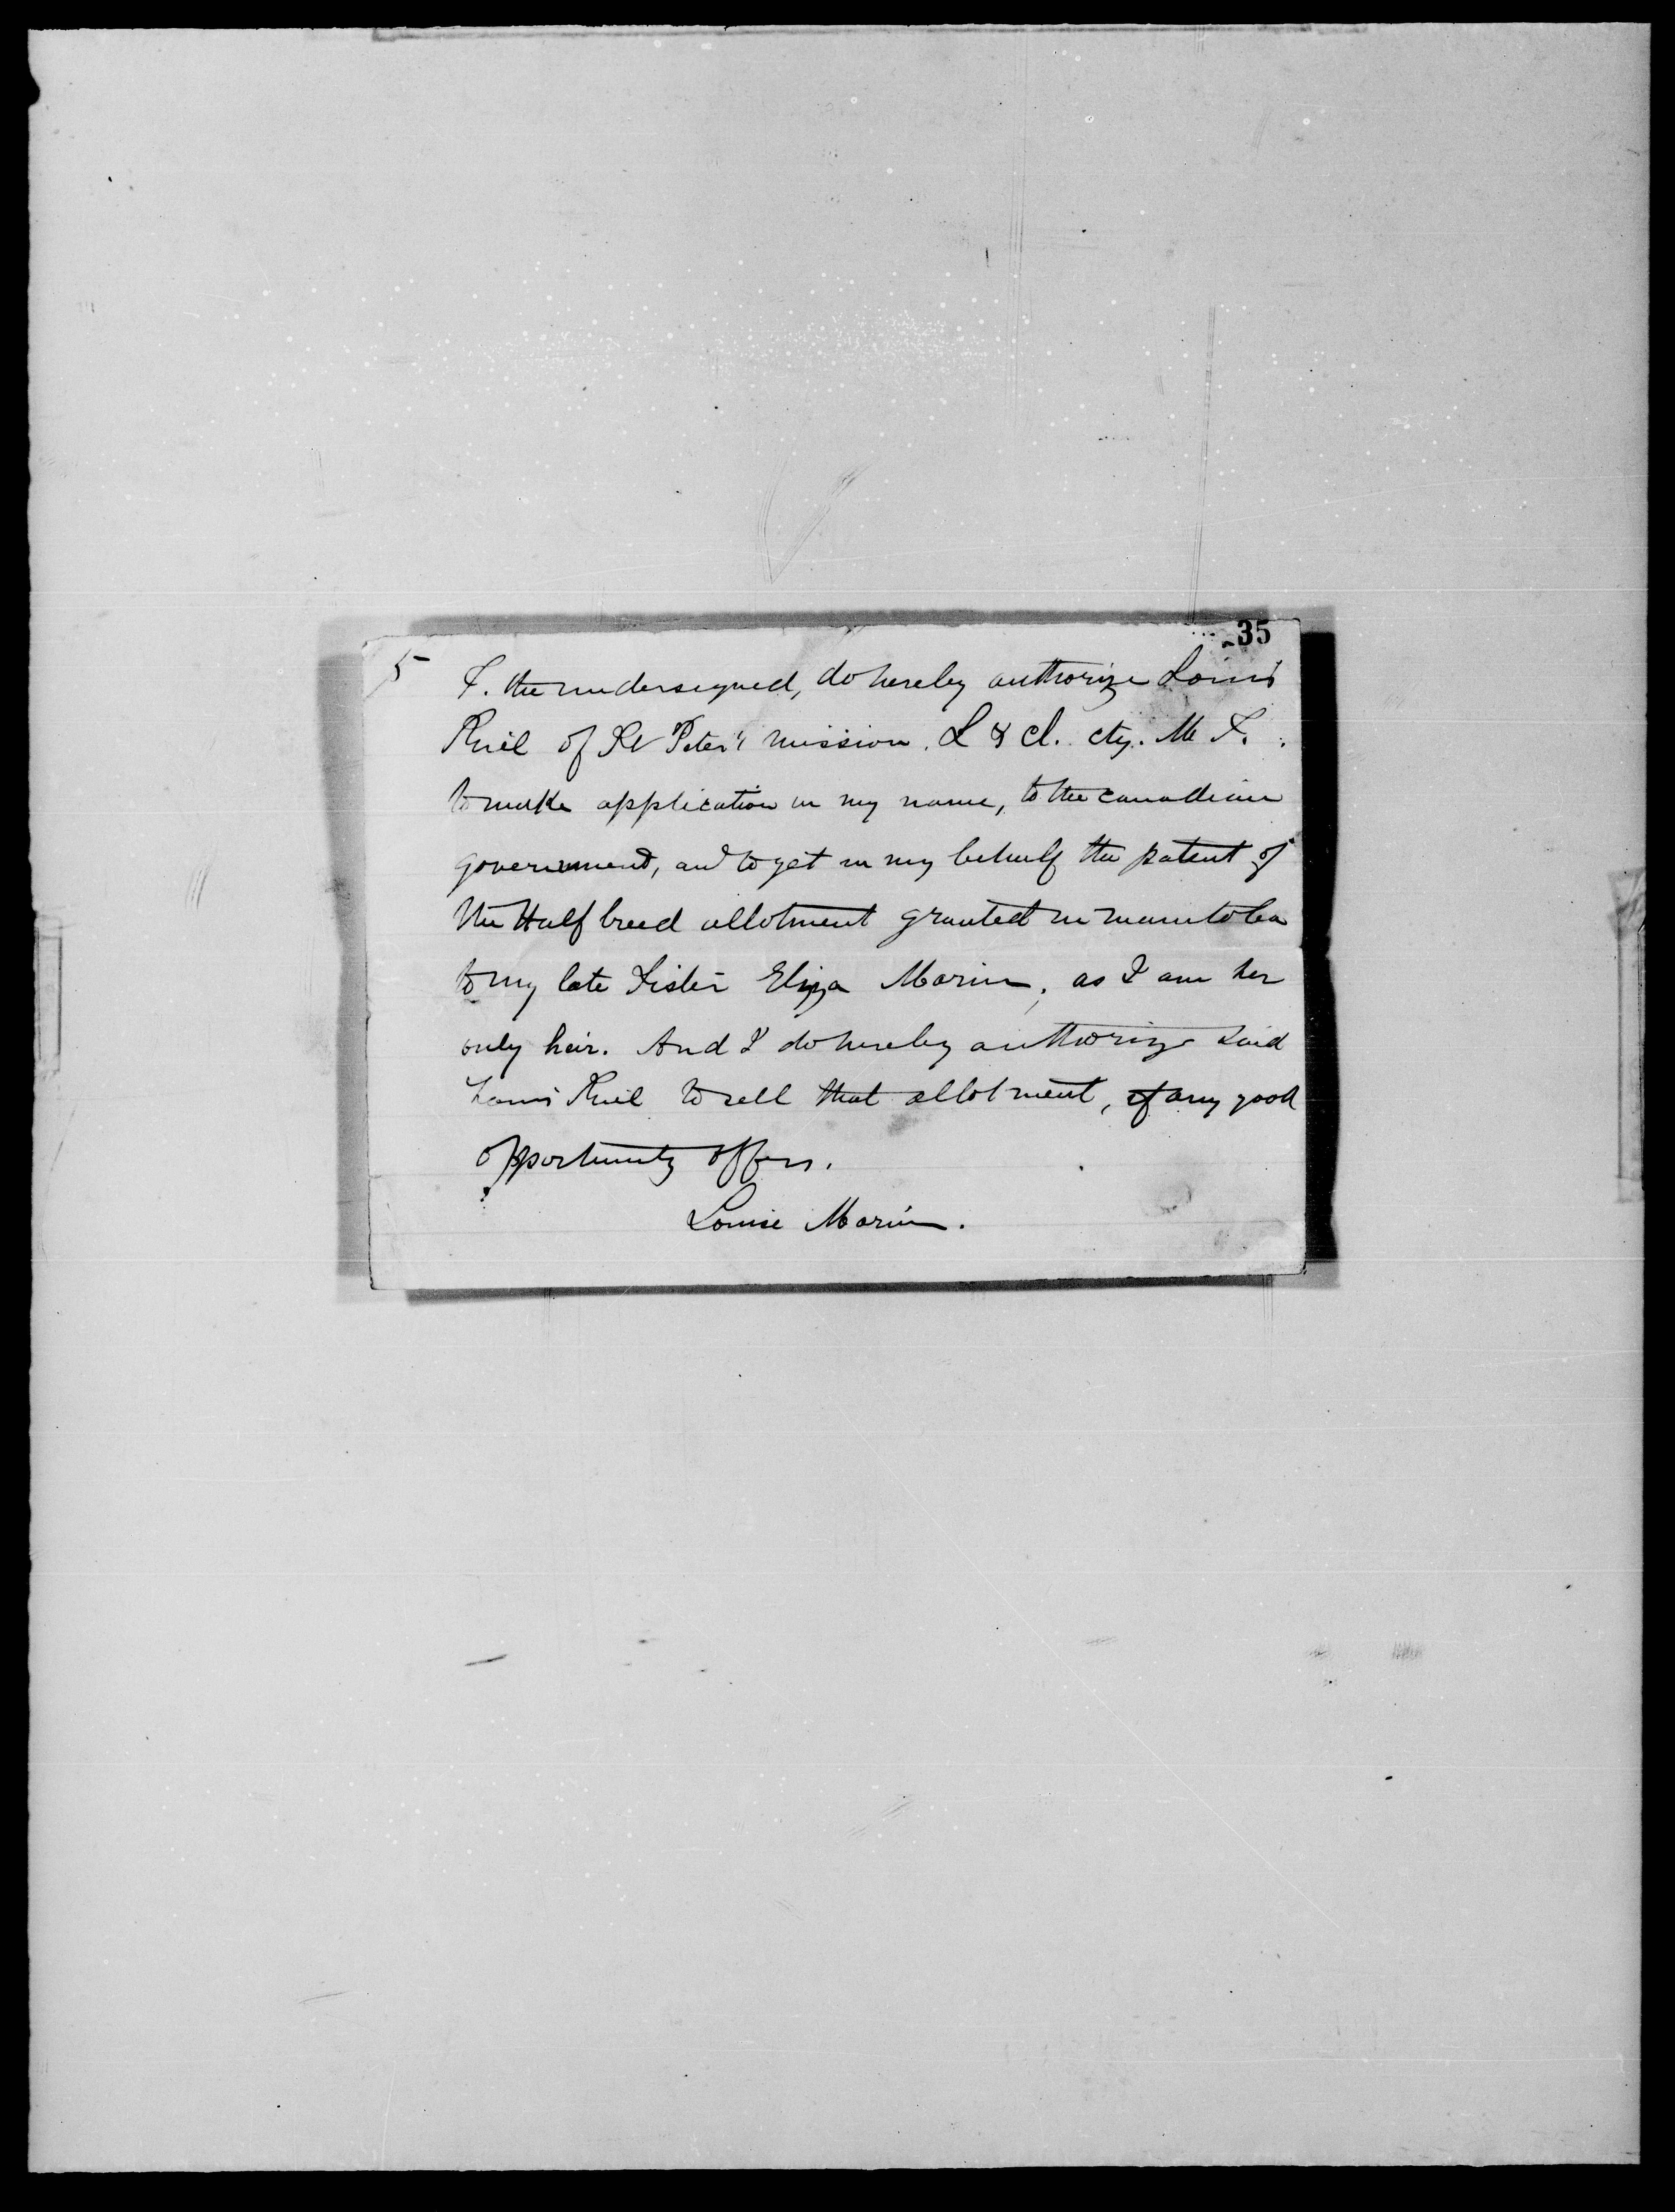 35
5
I. the undersigned, do hereby authorize Louis
Riel of St Peter's mission. L & Cl. cty. M T.
to make application in my name, to the canadian
government, and to get in my behalf the patent of
the Half breed allotment granted in manitoba
to my late Sister Eliza Marion, as I am her
only heir. And I do hereby authorize said
Louis Riel to sell that allotment, if any good
opportunity offers.
Louise Marion.